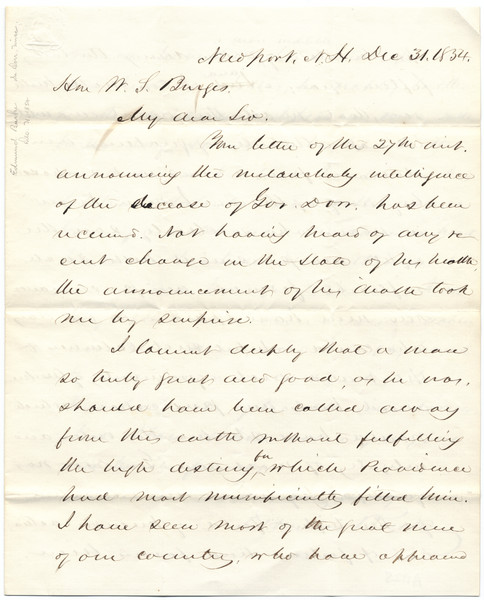 Newport, N.H. Dec 31. 1854.
Hon W. S. Burges.
My dear Sir.
Your letter of the 27th inst.
announcing the melancholy intelligence
of the decease of Gov Dorr. has been
received. Not having heard of any re
cent change in the state of his health,
the announcement of his death took
me by surprise.
I lament deeply that a man
so truly great and good, as he was,
should have been called away
from this earth without fulfilling
the high destiny for which Providence
had most munificiently fitted him.
I have seen most of the great men
of our country, who have appeared
Edmund Burke
Dec 31, 1854